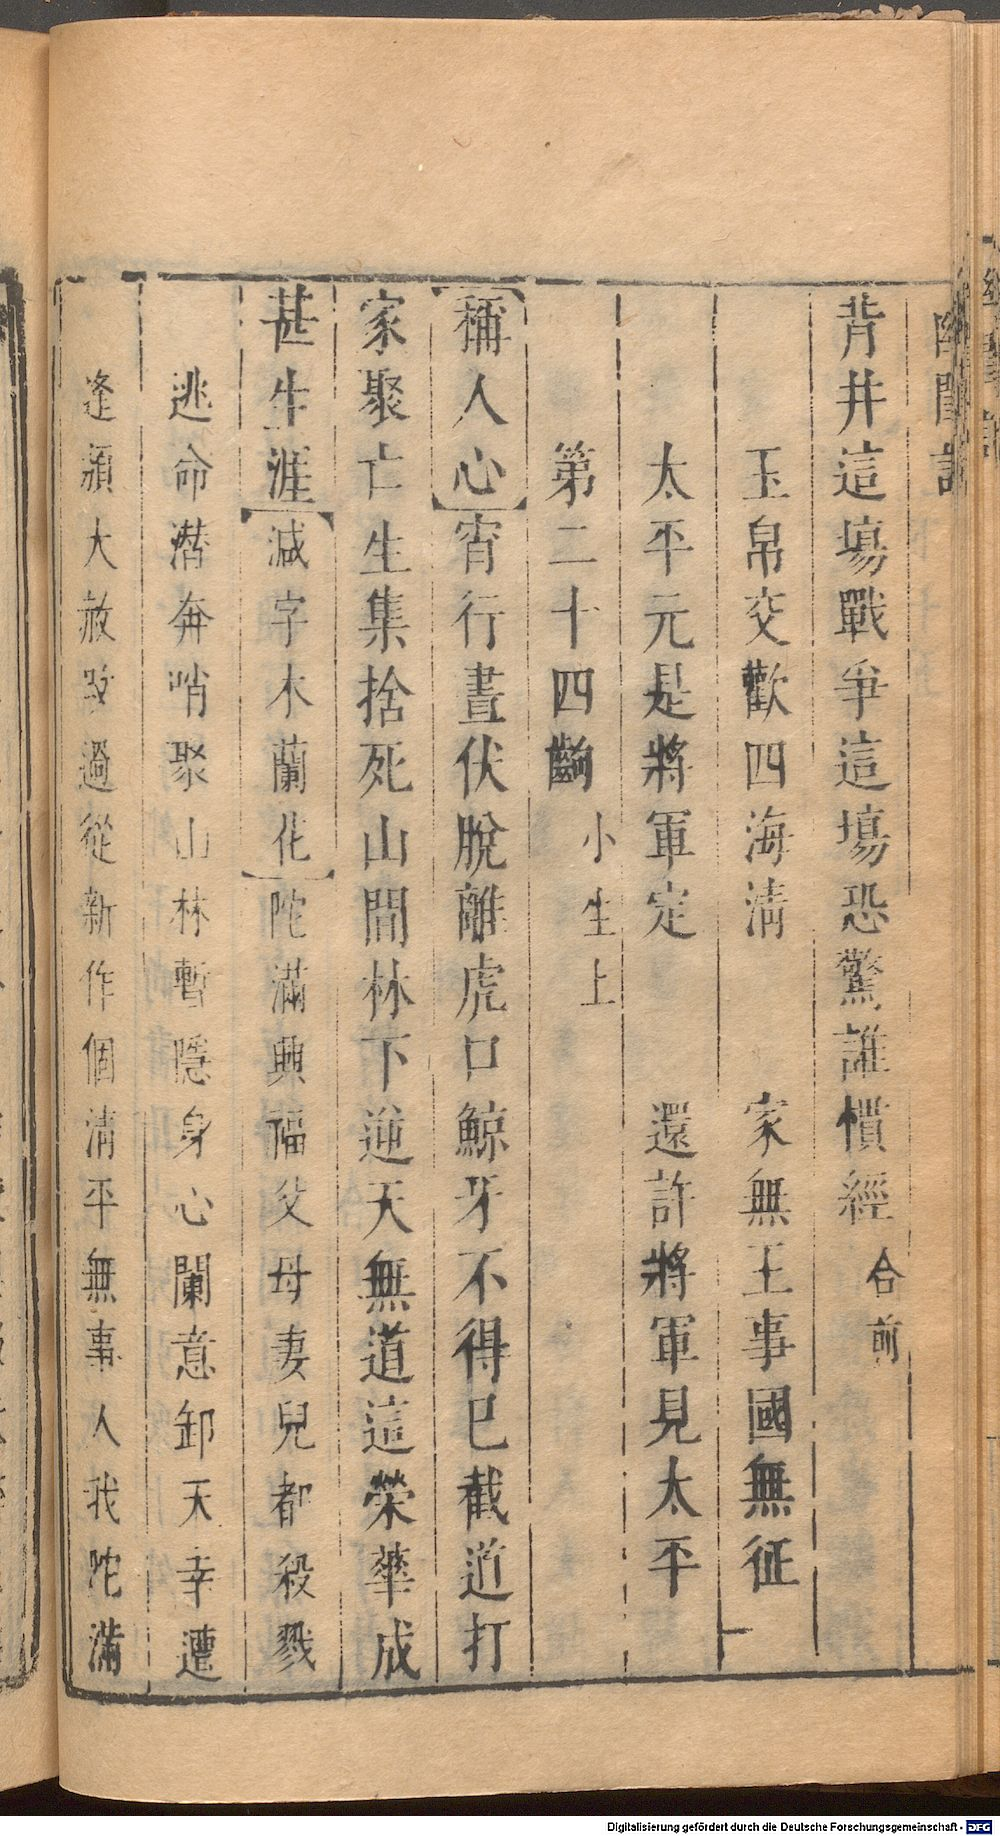 幽閨記
背井這場戰爭這場恐驚誰慣經 合前
玉帛交歡四海淸 家無王事國無征
太平元是將軍定 還許將軍見太平
第二十四齣 小生上
稱人心 宵行晝伏脫離虎口鯨牙不得已截道打
家聚亡生集捨死山間林下逆天無道這榮華成
甚生涯 減字木蘭花 陀滿興福父母妻兒都殺戮
逃命潛奔哨聚山林暫隱身心闌意卸天幸遭
逢頒大赦改過從新作個淸平無事人我陀滿
Digitalisierung gefördert durch die Deutsche Forschungsgemeinschaft - DFG